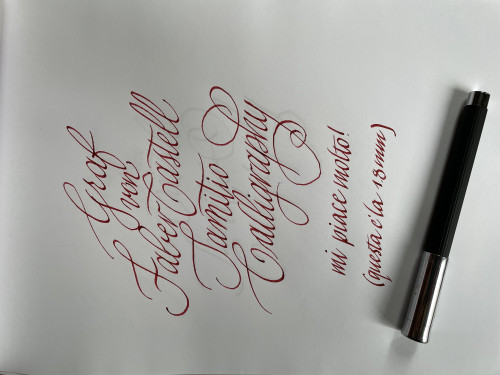 Graf
von
Faber Castell
Tamitio
Calligraphy
mi piace molto!
(questa è la 1.3mm)